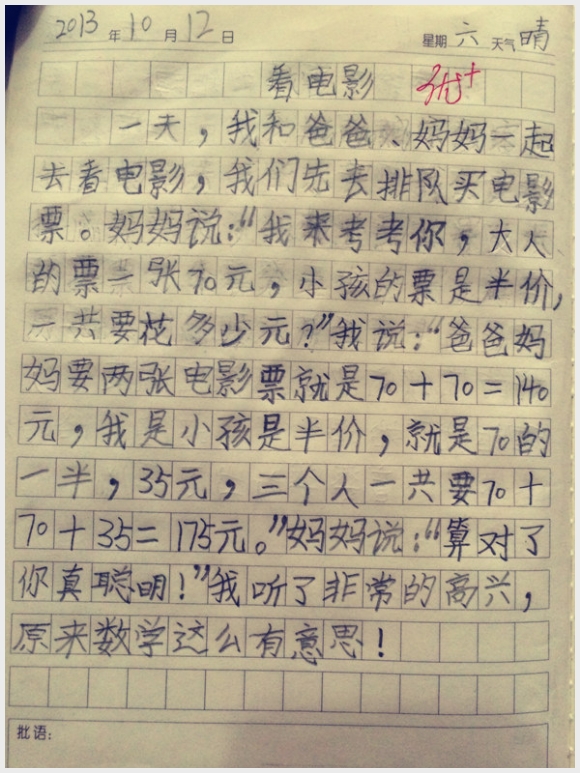 2013年10月12日 星期六 天气晴
看电影 优+
一天，我和爸爸、妈妈一起
去看电影，我们先去排队买电影
票。妈妈说：“我来考考你，大人
的票一张70元，小孩的票是半价，
一共要花多少元？”我说：“爸爸妈
妈要两张电影票就是70+70=140
元，我是小孩是半价，就是70的
一半，35元，三个人一共要70+
70+35=175元。”妈妈说：“算对了
你真聪明！”我听了非常的高兴，
原来数学这么有意思！
批语：